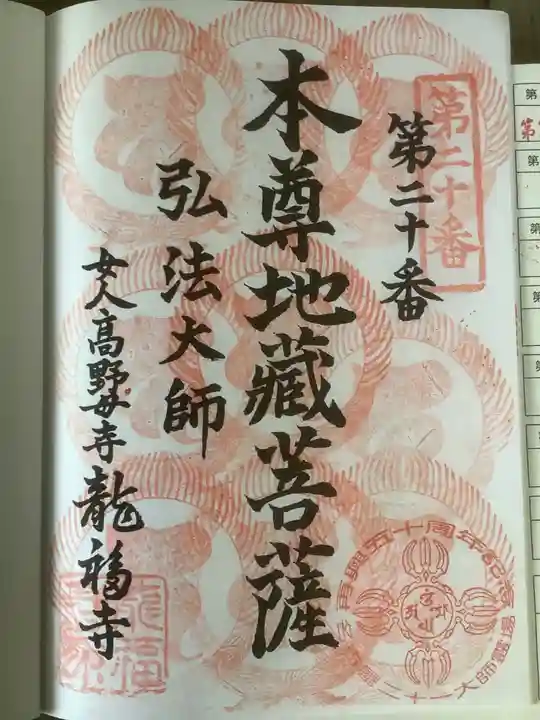 第二十番
第二十番
本尊地藏菩薩
弘法大師
女人高野母寺龍福寺
再興五十周年記念
二十一大師霊場
龍福寺
第
第
第
第
第